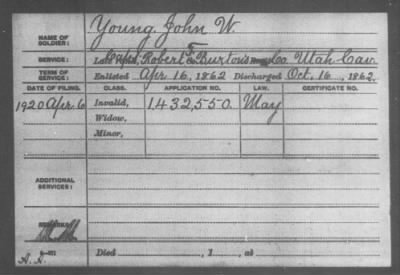 NAME OF SOLDIER: Young, John W.
SERVICE: Late Capt. Robert T. Burton's Co. Utah Cav
TERM OF SERVICE: Enlisted Apr. 16, 1862 Discharged Oct. 16, 1862.
DATE OF FILING. CLASS. APPLICATION NO. LAW. CERTIFICATE NO.
1920 Apr 6 Invalid, 1,432,550. May
Widow,
Minor,
ADDITIONAL SERVICES:
REMARKS:
Died , 1 , at